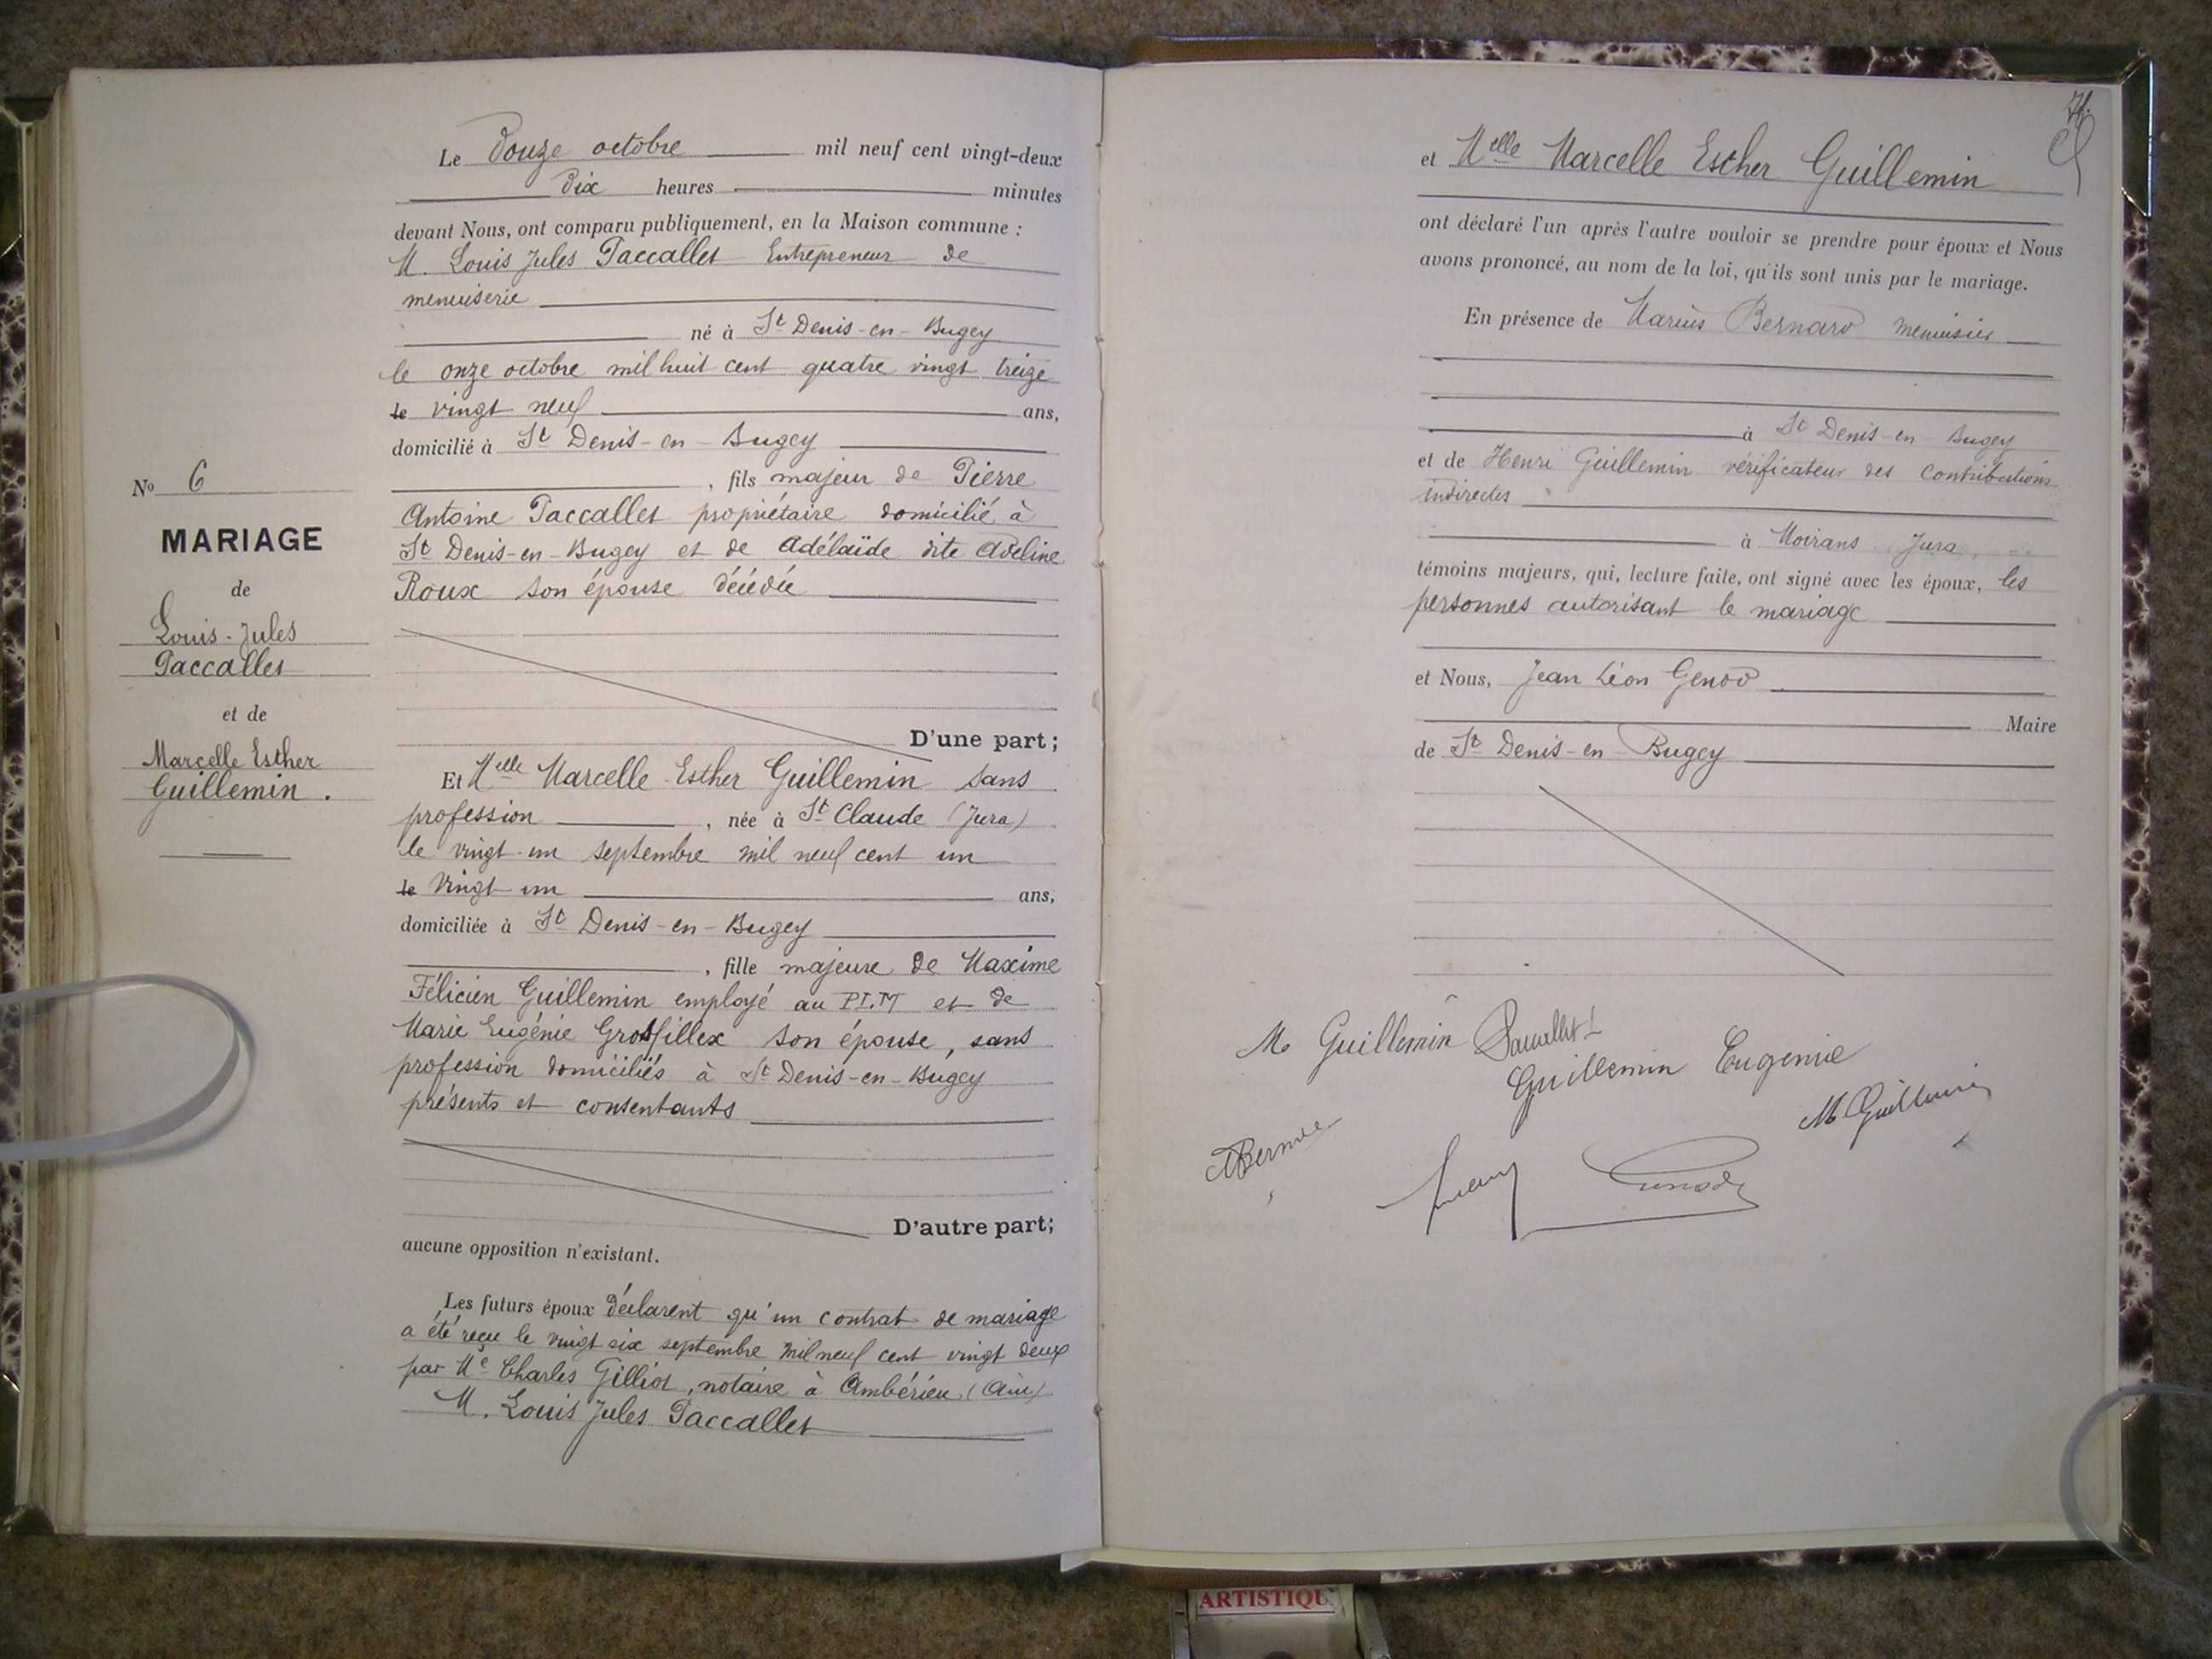 Le Douze octobre mil neuf cent vingt-deux
Dix heures minutes
devant Nous, ont comparu publiquement, en la Maison commune :
M. Louis Jules Paccallet Entrepreneur de
menuiserie
né à St Denis-en-Bugey
le onze octobre mil huit cent quatre vingt treize
le vingt neuf ans,
domicilié à St Denis-en-Bugey
, fils majeur de Pierre
Antoine Paccallet propriétaire domicilié à
St Denis-en-Bugey et de Adélaïde dite Adeline
Roux son épouse décédée
D'une part;
Et Melle Marcelle Esther Guillemin sans
profession , née à St Claude (Jura)
le vingt-un septembre mil neuf cent un
le vingt-un ans,
domiciliée à St Denis-en-Bugey
, fille majeure de Maxime
Félicien Guillemin employé au P.L.M et de
Marie Eugénie Grosfillex son épouse, sans
profession domiciliés à St Denis-en-Bugey
présents et consentants
D'autre part;
aucune opposition n'existant.
Les futurs époux déclarent qu'un contrat de mariage
a été reçu le vingt six septembre mil neuf cent vingt deux
par Me Charles Gilliot, notaire à Ambérieu (Ain)
M. Louis Jules Paccallet
No 6
MARIAGE
de
Louis-Jules
Paccallet
et de
Marcelle Esther
Guillemin.
et Melle Marcelle Esther Guillemin
ont déclaré l'un après l'autre vouloir se prendre pour époux et Nous
avons prononcé, au nom de la loi, qu'ils sont unis par le mariage.
En présence de Marius Bernard menuisier
à St Denis-en-Bugey
et de Henri Guillemin vérificateur des contributions
indirectes
à Moirans Jura
témoins majeurs, qui, lecture faite, ont signé avec les époux, les
personnes autorisant le mariage
et Nous, Jean Léon Genod
Maire
de St Denis-en-Bugey
M. Guillemin Paccallet L
Guillemin Eugenie
M Guillemin
Genod
ARTISTIQU